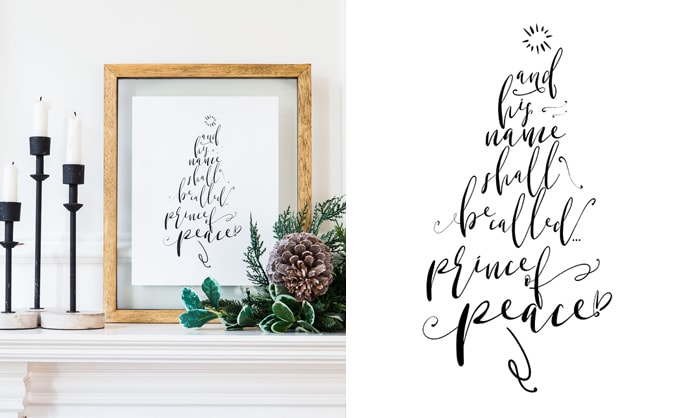 and
his
name
shall
be called
prince of
peace
and
his
name
shall
be called...
prince of
peace